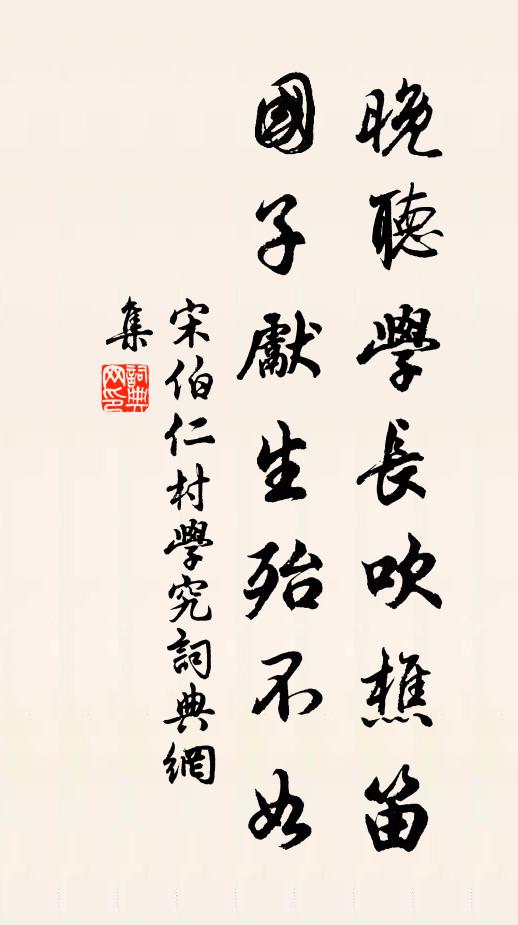 晚聽學長吹樵笛
國子獻生殆不如
宋伯仁村學究詞典網
集
詞典
网印